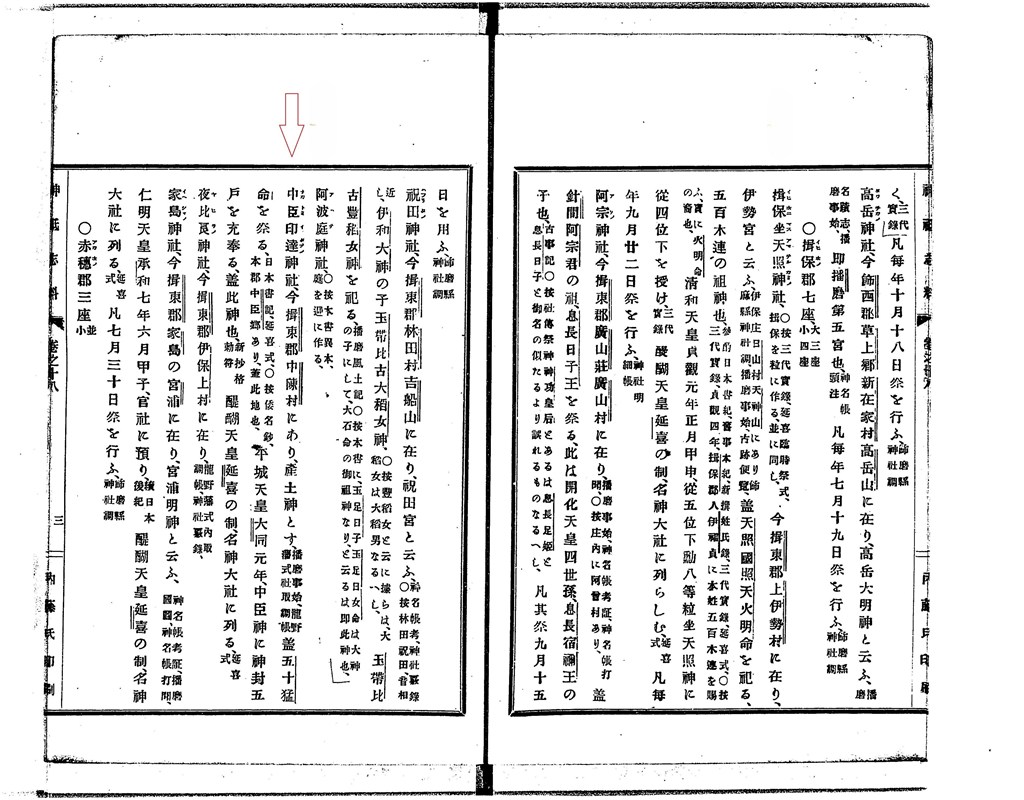 く、三代實錄凡每年十月十八日祭を行ふ、飾磨縣神社調
高岳神社、今飾西郡草上鄉新在家村高岳山に在り、高岳大明神と云ふ、播磨
名蹟志、播磨事始、即播磨第五宮也、神名帳頭注凡每年七月十九日祭を行ふ、飾磨縣神社調
〇揖保郡七座大三座小四座
揖保坐天照神社、〇按三代實錄、延喜臨時祭式、揖保を粒に作る、並に同し、今揖東郡上伊勢村に在り、
伊勢宮と云ふ、伊保庄日山村天神山にあり飾麻縣神社調播磨事始、古跡便覽、蓋天照國照天火明命を祀る、
五百木連の祖神也、三代實錄、貞觀四年揖保郡人伊福貞に本姓五百木連を賜
ふ、實に火明命の裔也、清和天皇貞觀元年正月甲申、從五位下勳八等粒坐天照神に
從四位下を授け、三代實錄醍醐天皇延喜の制、名神大社に列らしむ、延喜式凡每
年九月廿二日祭を行ふ、神社明細帳
阿宗神社、今揖東郡廣山莊廣山村に在り、播磨事始、神名帳考証、神名帳打聞、〇按庄內に阿曾村あり、蓋
針間阿宗君の祖、息長日子王を祭る、此は開化天皇四世孫、息長宿禰王の
子也、古事記〇按社傳祭神神功皇后とあるは息長足姬と息長日子と御名の似たるより誤れるものなるへし、凡其祭九月十五
日を用ふ、飾磨縣神社調
祝田神社、今揖東郡林田村吉船山に在り、祝田宮と云ふ、神名帳考、神社覈錄〇按林田祝田音相
近し、伊和大神の子玉帶比古大稻女神、〇按豐稻女と云に據らは、大稻女は大稻男なるへし、玉帶比
古豐稻女神を祀る、播磨風土記〇按本書に、玉足日子玉足日女命は大神の子にして、大石命の御祖神なり、と云るは即此神也、
阿波庭神社、〇按異本、庭を遲に作る、
中臣印達神社、今揖東郡中陳村にあり、產土神とす、播磨事始、龍野藩式社取調帳、蓋五十猛
命を祭る、日本書記、延喜式、〇按倭名鈔、本郡中臣鄉あり、蓋此地也、平城天皇大同元年、中臣神に神封五
戶を充奉る、蓋此神也、新抄格勅符醍醐天皇延喜の制、名神大社に列る、延喜式
夜比良神社、今揖東郡伊保上村に在り、龍野藩式內取調帳、神社覈錄、
家島神社、今揖東郡家島の宮浦に在り、宮浦明神と云ふ、神名帳考証、播磨國圖、神名帳打聞、
仁明天皇承和七年六月甲子官社に預り、續日本後紀醍醐天皇延喜の制名神
大社に列る、延喜式凡七月三十日祭を行ふ、飾磨縣神社調
〇赤穗郡三座並小
三